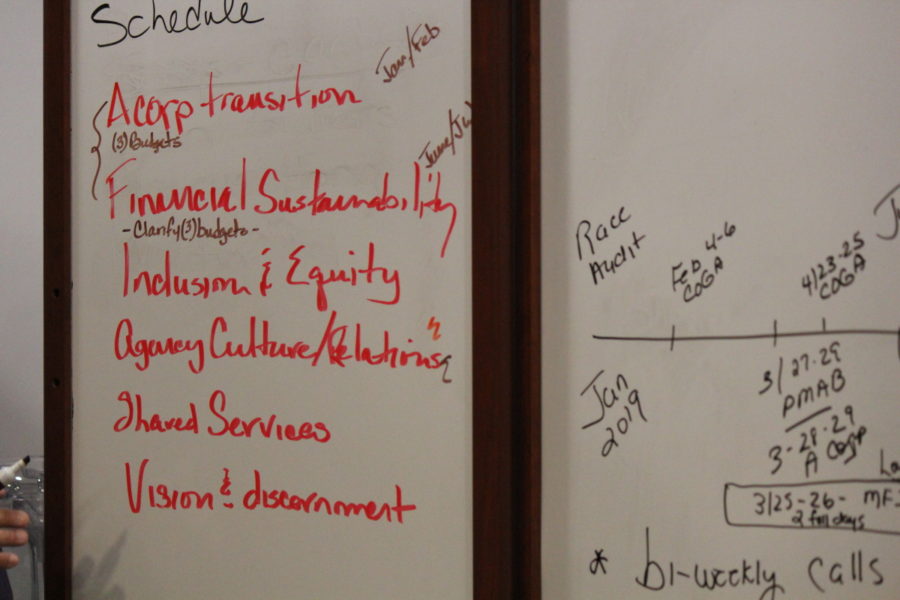 Schedule
Acorp transition
Jan/Feb
(3) Budgets
June/Ju
Financial Sustainability
- Clarify (3) budgets -
Inclusion & Equity
Agency Culture/Relations
Shared Services
Vision & discornment
Race
Audit
Feb 4-6
COGA
4/23-25
COGA
Jan
2019
3/27-29
PMAB
3-28-29
A Corp
3/25-26- MF
2 full days
* bi-weekly calls